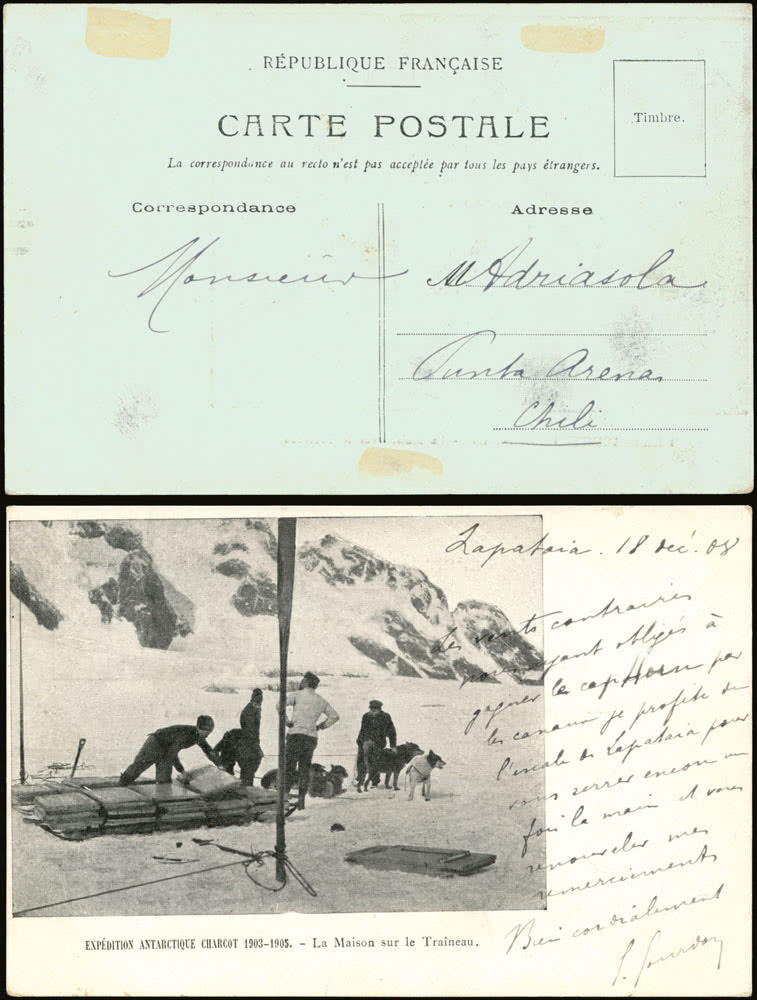 RÉPUBLIQUE FRANÇAISE
CARTE POSTALE
Timbre.
La correspondance au recto n'est pas acceptée par tous les pays étrangers.
Correspondance
Adresse
Monsieur M Adriasola
Punta Arenas
Chili
Lapataia. 18 déc. 08
Les vents contraires
nous ayant obligés à
gagner le cap Horn par
les canaux je profite de
l'escale de Lapataia pour
vous serrer encore une
fois la main et vous
renouveler mes
remerciements
Bien cordialement
E. Gourdon
EXPÉDITION ANTARCTIQUE CHARCOT 1903-1905. - La Maison sur le Traîneau.